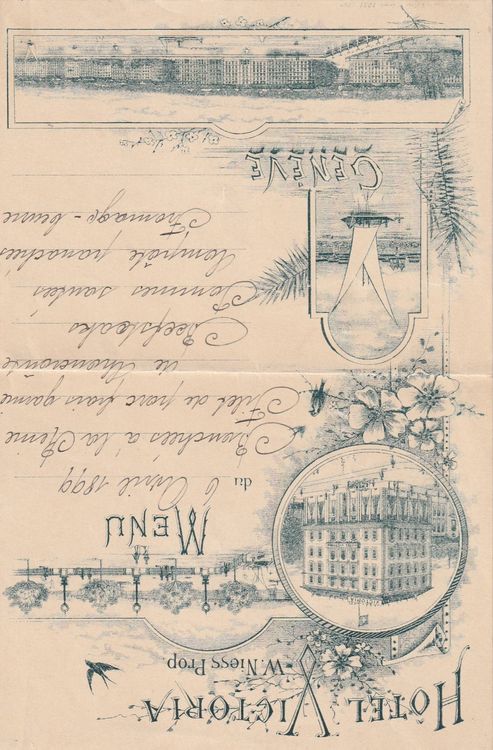 HÔTEL VICTORIA
W. Niess Prop
MENU
du 6 Avril 1899
Bouchées à la Reine
Filet de porc frais garni
de Choucroute
Beefsteaks
Pommes sautées
Compôte panachés
Fromage - beurre
GENÈVE